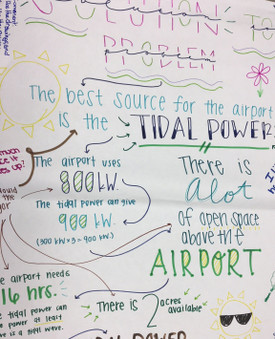 SOLUTION
TO
PROBLEM
The best source for the airport
is the
TIDAL POWER
The airport uses
800 kW.
The tidal power can give
900 kW.
(300 kW × 3 = 900 kW.)
There is
alot
of open space
above the
AIRPORT
airport needs
16 hrs.
tidal power can
power at least
is a tidal wave.
There is 2 acres
available
POWER